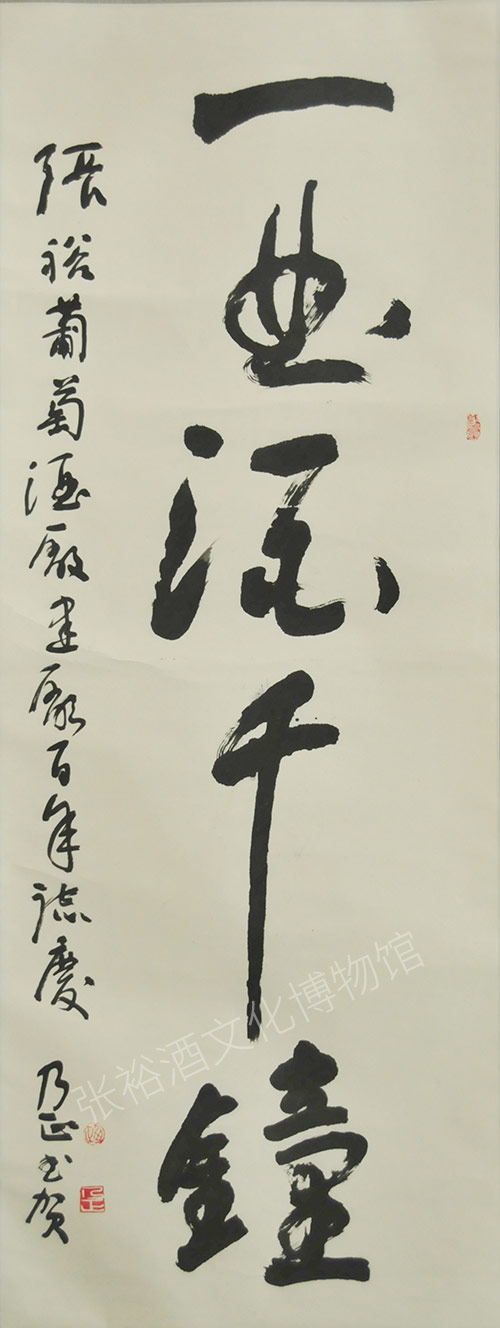 一曲酒千鐘
張裕葡萄酒廠建廠百年誌慶
乃正书贺
张裕酒文化博物馆